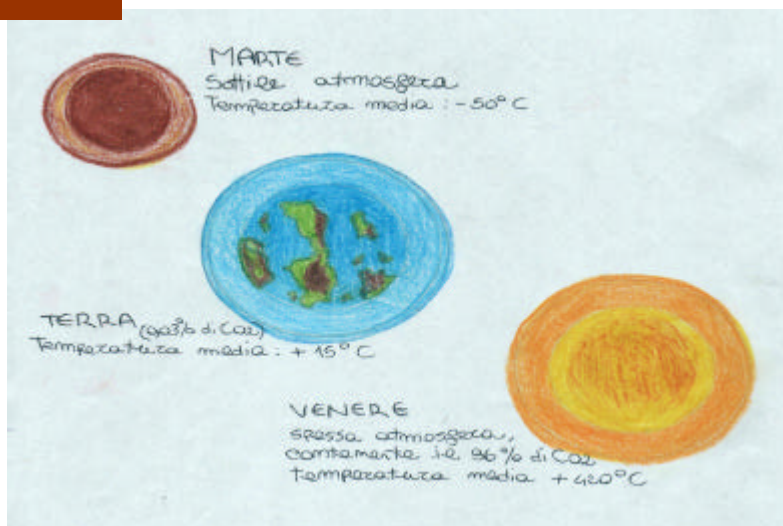 MARTE
Sottile atmosfera
Temperatura media : -50° C
TERRA (0,03% di CO2)
Temperatura media : + 15° C
VENERE
spessa atmosfera,
contenente il 96% di CO2
temperatura media + 420°C